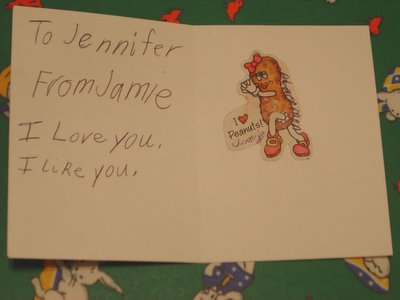 To Jennifer
From Jamie
I Love you.
I Like you.
I ♥
Peanuts!
Jamie